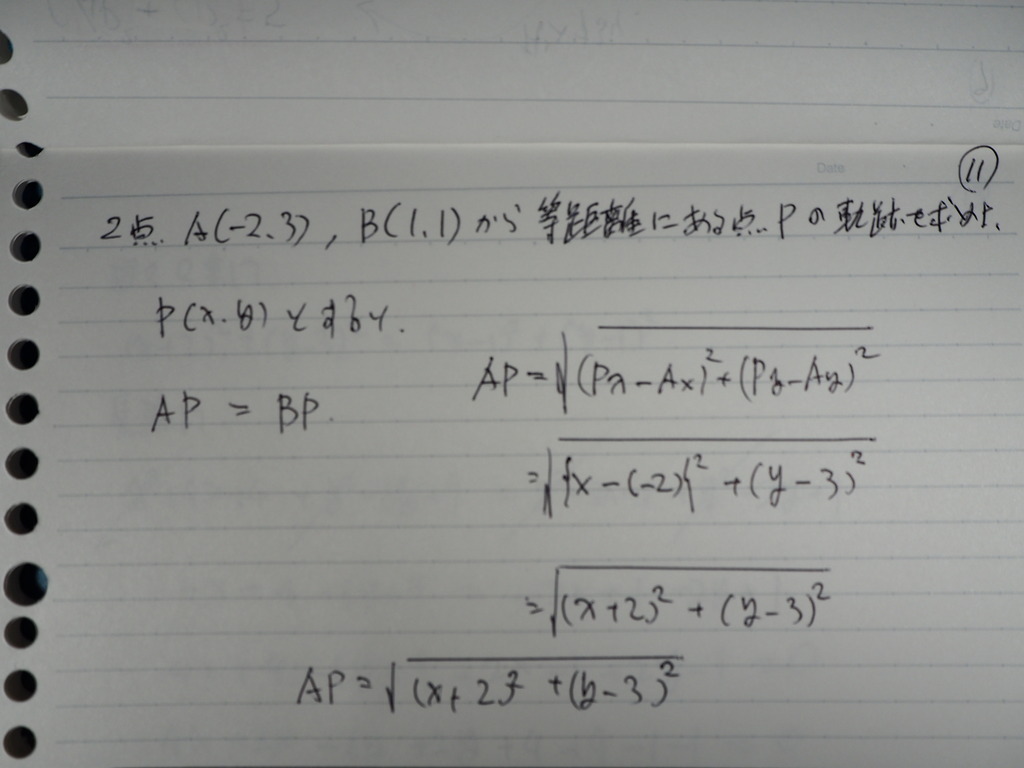 Date
⑪
2点 A(-2,3), B(1,1)から等距離にある点Pの軌跡を求めよ.
P(x.y)とすると.
AP = BP.
AP=√(Px-Ax)²+(Py-Ay)²
=√{x-(-2)}²+(y-3)²
=√(x+2)²+(y-3)²
AP=√(x+2)²+(y-3)²